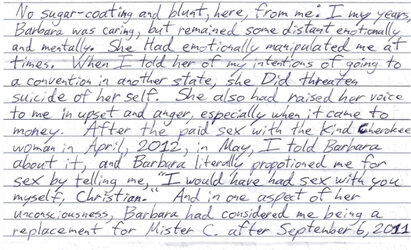 No sugar-coating and blunt, here, from me: I my years,
Barbara was caring, but remained some distant emotionally
and mentally. She Had emotionally manipulated me at
times. When I told her of my intentions of going to
a convention in another state, she Did threaten
suicide of her self. She also had raised her voice
to me in upset and anger, especially when it came to
money. After the paid sex with the Kind Cherokee
woman in April, 2012, in May, I told Barbara
about it, and Barbara literally propotioned me for
sex by telling me, "I would have had sex with you
myself, Christian." And in one aspect of her
unconsciousness, Barbara had considered me being a
replacement for Mister C. after September 6, 2011